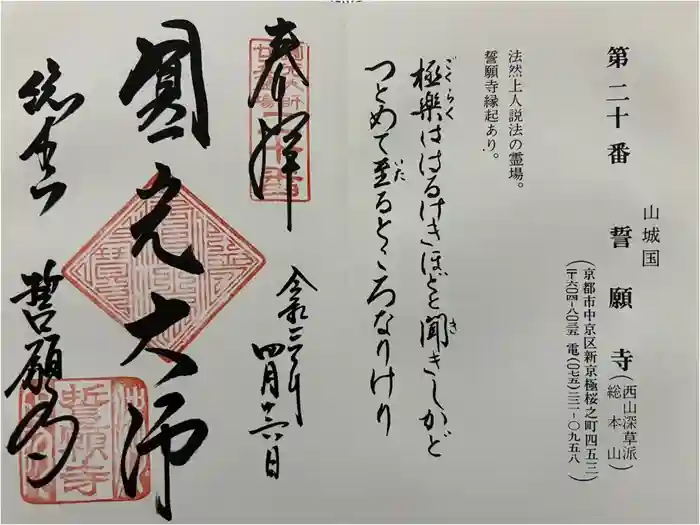 第二十番 誓願寺(西山深草派 総本山)
山城国
(京都市中京区新京極桜之町四五三)
(〒六〇四-八〇三五 電(〇七五)二二一-〇九五八
法然上人説法の霊場。
誓願寺縁起あり。
極楽ははるけきほどと聞きしかど
ごくらく
き
つとめて至るところなりけり
いた
奉拝
圓光大師
総本山
誓願寺
令和三年
四月十六日
誓願寺